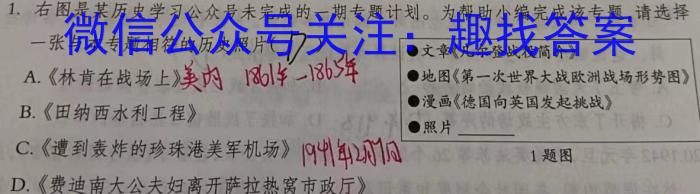 1. 右图是某历史学习公众号未完成的一期专题计划。为帮助小编完成该专题,请选择
一张与 专题相符的历史照片( )
微信公众号关注:趣找答案
A.《林肯在战场上》美内 1861年-1865年
B.《田纳西水利工程》
C.《遭到轰炸的珍珠港美军机场》1941年12月7日
D.《费迪南大公夫妇离开萨拉热窝市政厅》
●文章《凡尔登战役简介》
●地图《第一次世界大战欧洲战场形势图》
●漫画《德国向英国发起挑战》
●照片
1题图